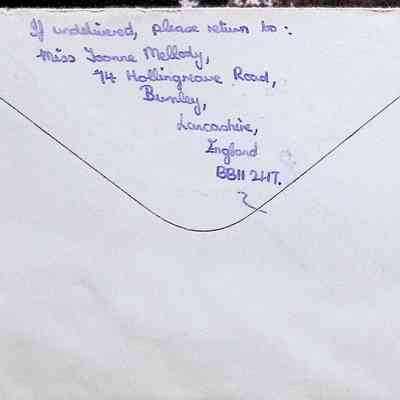 If undelivered, please return to:
Miss Yvonne Mellody,
74 Hollingreave Road,
Burnley,
Lancashire,
England
BB11 2HT.